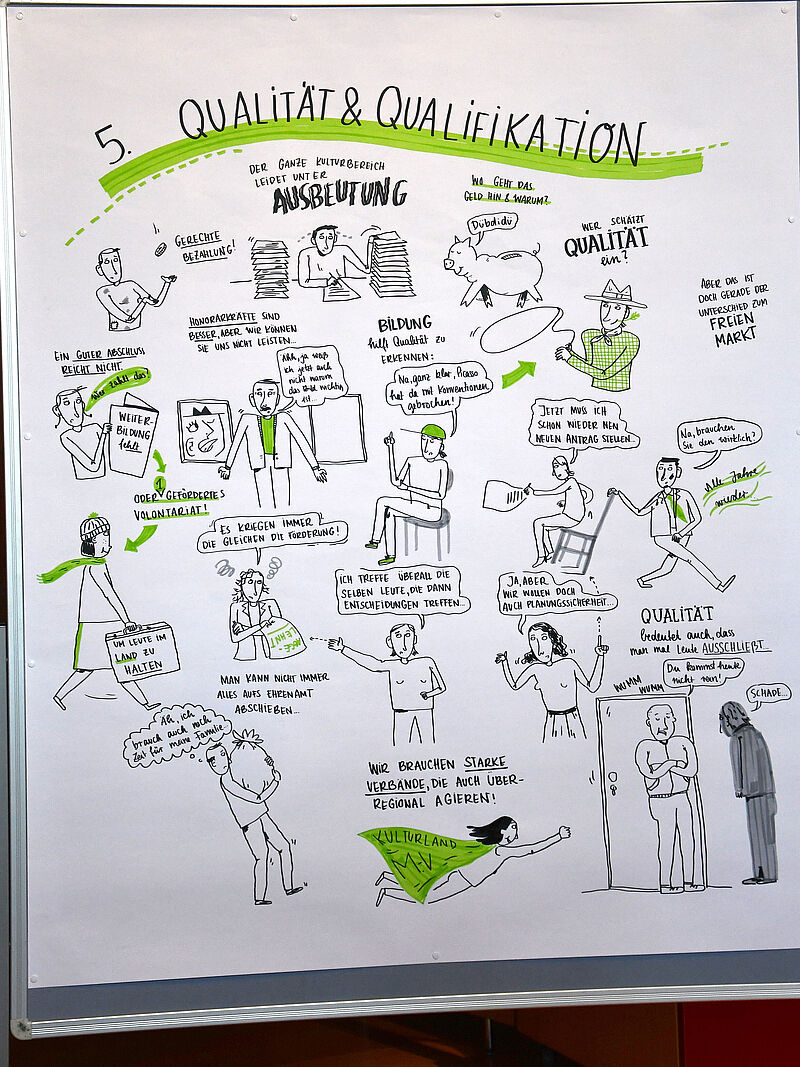 5. QUALITÄT & QUALIFIKATION
DER GANZE KULTURBEREICH
LEIDET UNTER
AUSBEUTUNG
WO GEHT DAS
GELD HIN & WARUM?
Dübdidü
WER SCHÄTZT
QUALITÄT
ein?
GERECHTE
BEZAHLUNG!
ABER DAS IST
DOCH GERADE DER
UNTERSCHIED ZUM
FREIEN
MARKT
HONORARKRÄFTE SIND
BESSER, ABER WIR KÖNNEN
SIE UNS NICHT LEISTEN...
Ähh, ja weiß
ich jetzt auch
nicht warum
das Bild wichtig
ist...
BILDUNG
hilft Qualität zu
ERKENNEN:
Na, ganz klar, Picasso
hat da mit Konventionen
gebrochen!
EIN GUTER ABSCHLUSS
REICHT NICHT.
Wer zahlt das?
WEITER-
BILDUNG
fehlt
1
ODER GEFÖRDERTES
VOLONTARIAT!
UM LEUTE IM
LAND ZU
HALTEN
JETZT MUSS ICH
SCHON WIEDER NEN
NEUEN ANTRAG STELLEN...
Na, brauchen
Sie den wirklich?
Alle Jahre
wieder...
ES KRIEGEN IMMER
DIE GLEICHEN DIE FÖRDERUNG!
ABGE-
LEHNT
ICH TREFFE ÜBERALL DIE
SELBEN LEUTE, DIE DANN
ENTSCHEIDUNGEN TREFFEN...
JA, ABER
WIR WOLLEN DOCH
AUCH PLANUNGSSICHERHEIT...
QUALITÄT
bedeutet auch, dass
man mal Leute AUSSCHLIEẞT...
Du kommst heute
nicht rein!
WUMM
WUMM
SCHADE...
MAN KANN NICHT IMMER
ALLES AUFS EHRENAMT
ABSCHIEBEN...
Äh, ich
brauch auch noch
Zeit für meine Familie...
WIR BRAUCHEN STARKE
VERBÄNDE, DIE AUCH ÜBER-
REGIONAL AGIEREN!
KULTURLAND
M-V